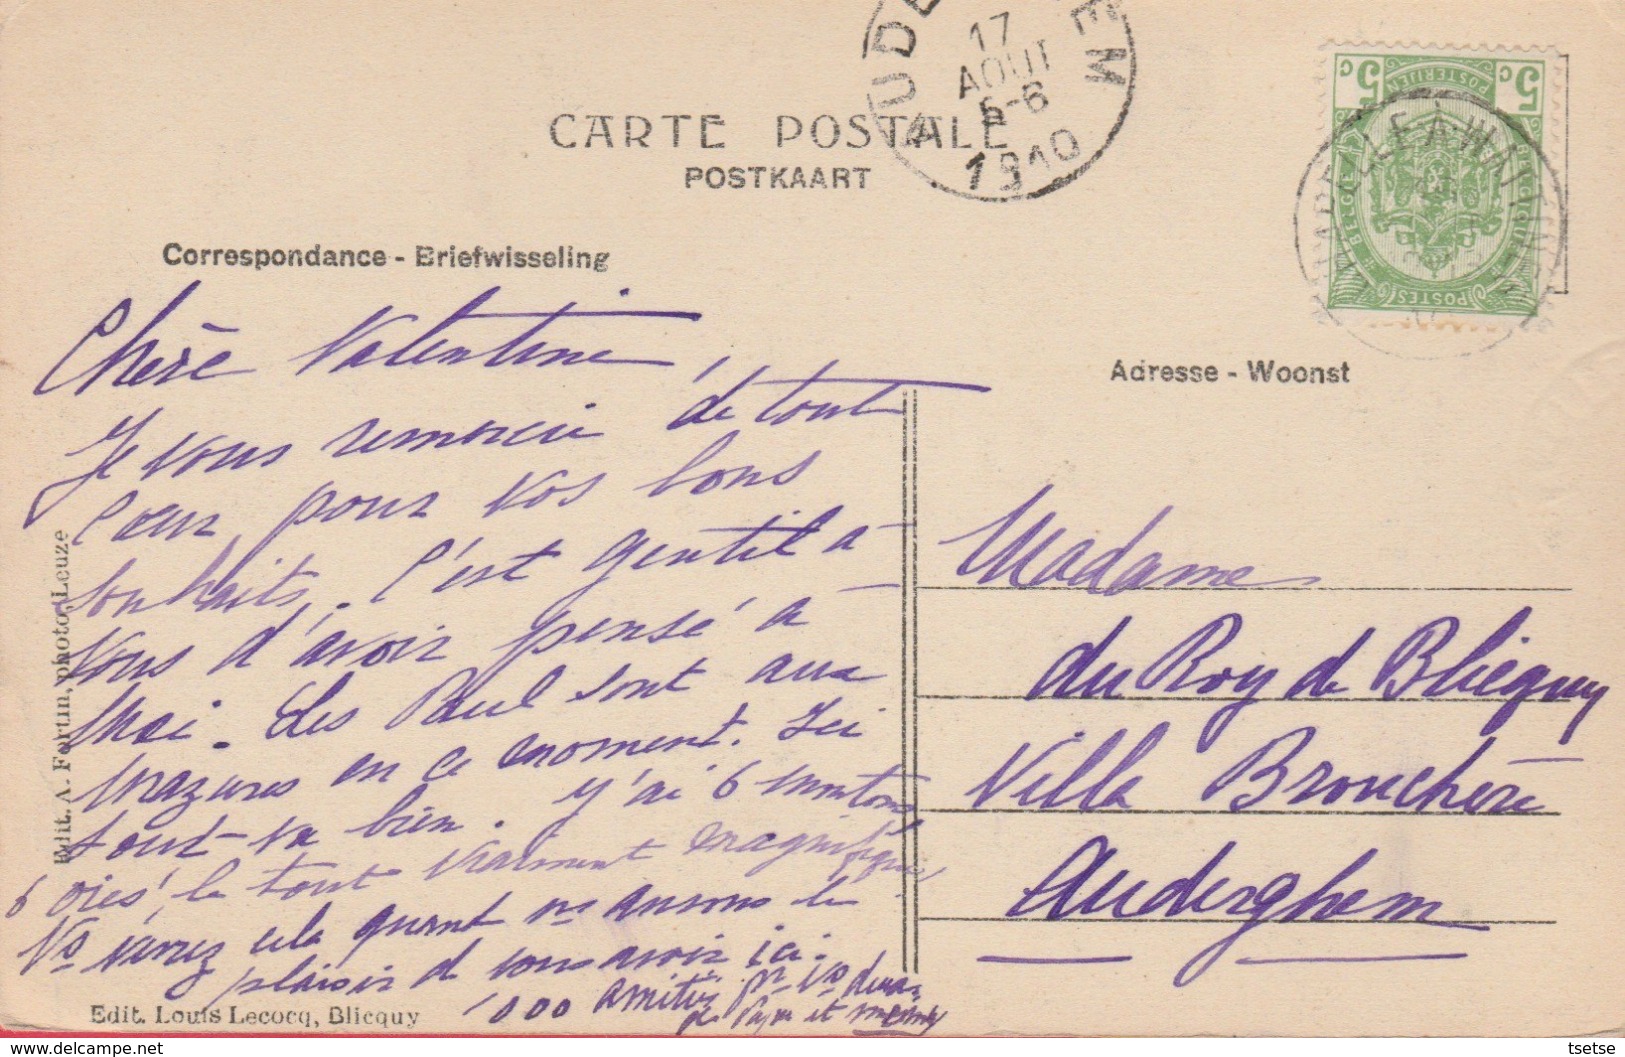 CARTE POSTALE
POSTKAART
17
AOUT
5-6
1910
5 c
5 c
POSTERIJEN
POSTES
Correspondance - Briefwisseling
Adresse - Woonst
Chère Valentine,
Je vous remercie de tout
Cœur pour vos bons
souhaits. C'est gentil à
vous d'avoir pensé à
moi. Les Paul sont aux
Mazures en ce moment. Ici
tout va bien. J'ai 6 moutons
6 oies, le tout vraiment magnifique
Vs verrez cela quand ns aurons le
plaisir d vous avoir ici.
1000 amitiés pr vs deux
de Papa et
Madame
du Roy de Blicquy
Villa Brouchère
Auderghem
Edit. A. Fortin, photo, Leuze
Edit. Louis Lecocq, Blicquy
tsetse